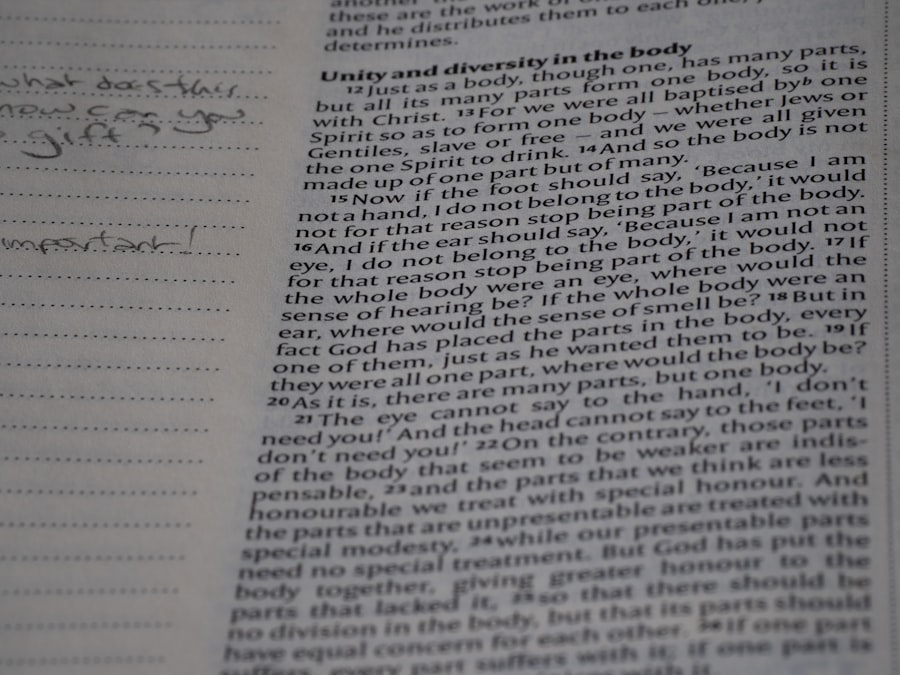 what does this
now can you
gift?
important!
these are the work of
and he distributes them to each one,
determines.
Unity and diversity in the body
12 Just as a body, though one, has many parts,
but all its many parts form one body, so it is
with Christ. 13 For we were all baptised by b one
Spirit so as to form one body – whether Jews or
Gentiles, slave or free – and we were all given
the one Spirit to drink. 14 And so the body is not
made up of one part but of many.
15 Now if the foot should say, ‘Because I am
not a hand, I do not belong to the body,’ it would
not for that reason stop being part of the body.
16 And if the ear should say, ‘Because I am not an
eye, I do not belong to the body,’ it would not
for that reason stop being part of the body. 17 If
the whole body were an eye, where would the
sense of hearing be? If the whole body were an
ear, where would the sense of smell be? 18 But in
fact God has placed the parts in the body, every
one of them, just as he wanted them to be. 19 If
they were all one part, where would the body be?
20 As it is, there are many parts, but one body.
21 The eye cannot say to the hand, ‘I don’t
need you!’ And the head cannot say to the feet, ‘I
don’t need you!’ 22 On the contrary, those parts
of the body that seem to be weaker are indis-
pensable, 23 and the parts that we think are less
honourable we treat with special honour. And
the parts that are unpresentable are treated with
special modesty, 24 while our presentable parts
need no special treatment. But God has put the
body together, giving greater honour to the
parts that lacked it, 25 so that there should be
no division in the body, but that its parts should
have equal concern for each other. 26 If one part
suffers, every part suffers with it; if one part is
with it.